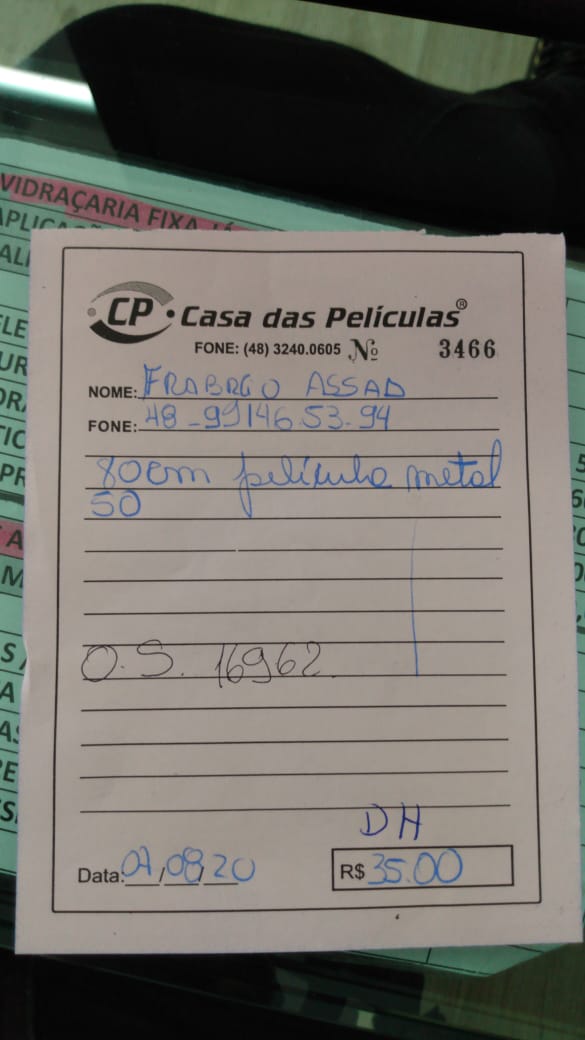 VIDRAÇARIA FIXA
CP · Casa das Películas®
FONE: (48) 3240.0605 Nº 3466
NOME: FRABRGO ASSAD
FONE: 48-99146.53-94
80cm película metal
50
O.S. 16962.
DH
Data: 07/08/20 R$ 35.00